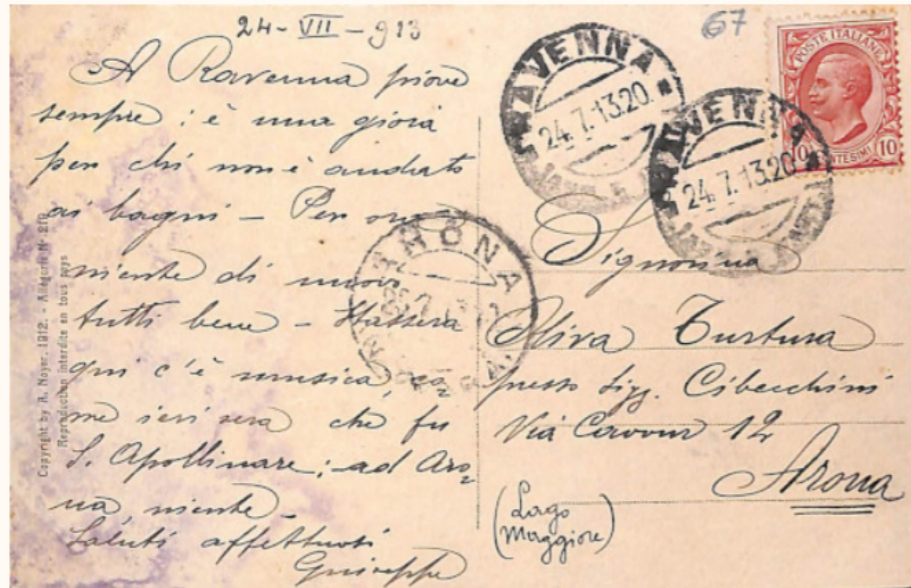 24-VII-913
67
A Ravenna piove
sempre: è una gioia
per chi non è andato
ai bagni - Per ora
niente di nuovo
tutti bene - Stassera
qui c'è musica co=
me ieri sera che fu
S. Apollinare; ad Aro=
na niente.
Saluti affettuosi
Giuseppe
Copyright by A. Noyer, 1912. - Allégorie N° 219
Reproduction interdite en tous pays
POSTE ITALIANE
10 CENTESIMI 10
RAVENNA
24.7.13.20
RAVENNA
24.7.13.20
ARONA
Signorina
Turtura
presso Sigg. Cibecchini
Via Cavour 12
Arona
(Lago
Maggiore)